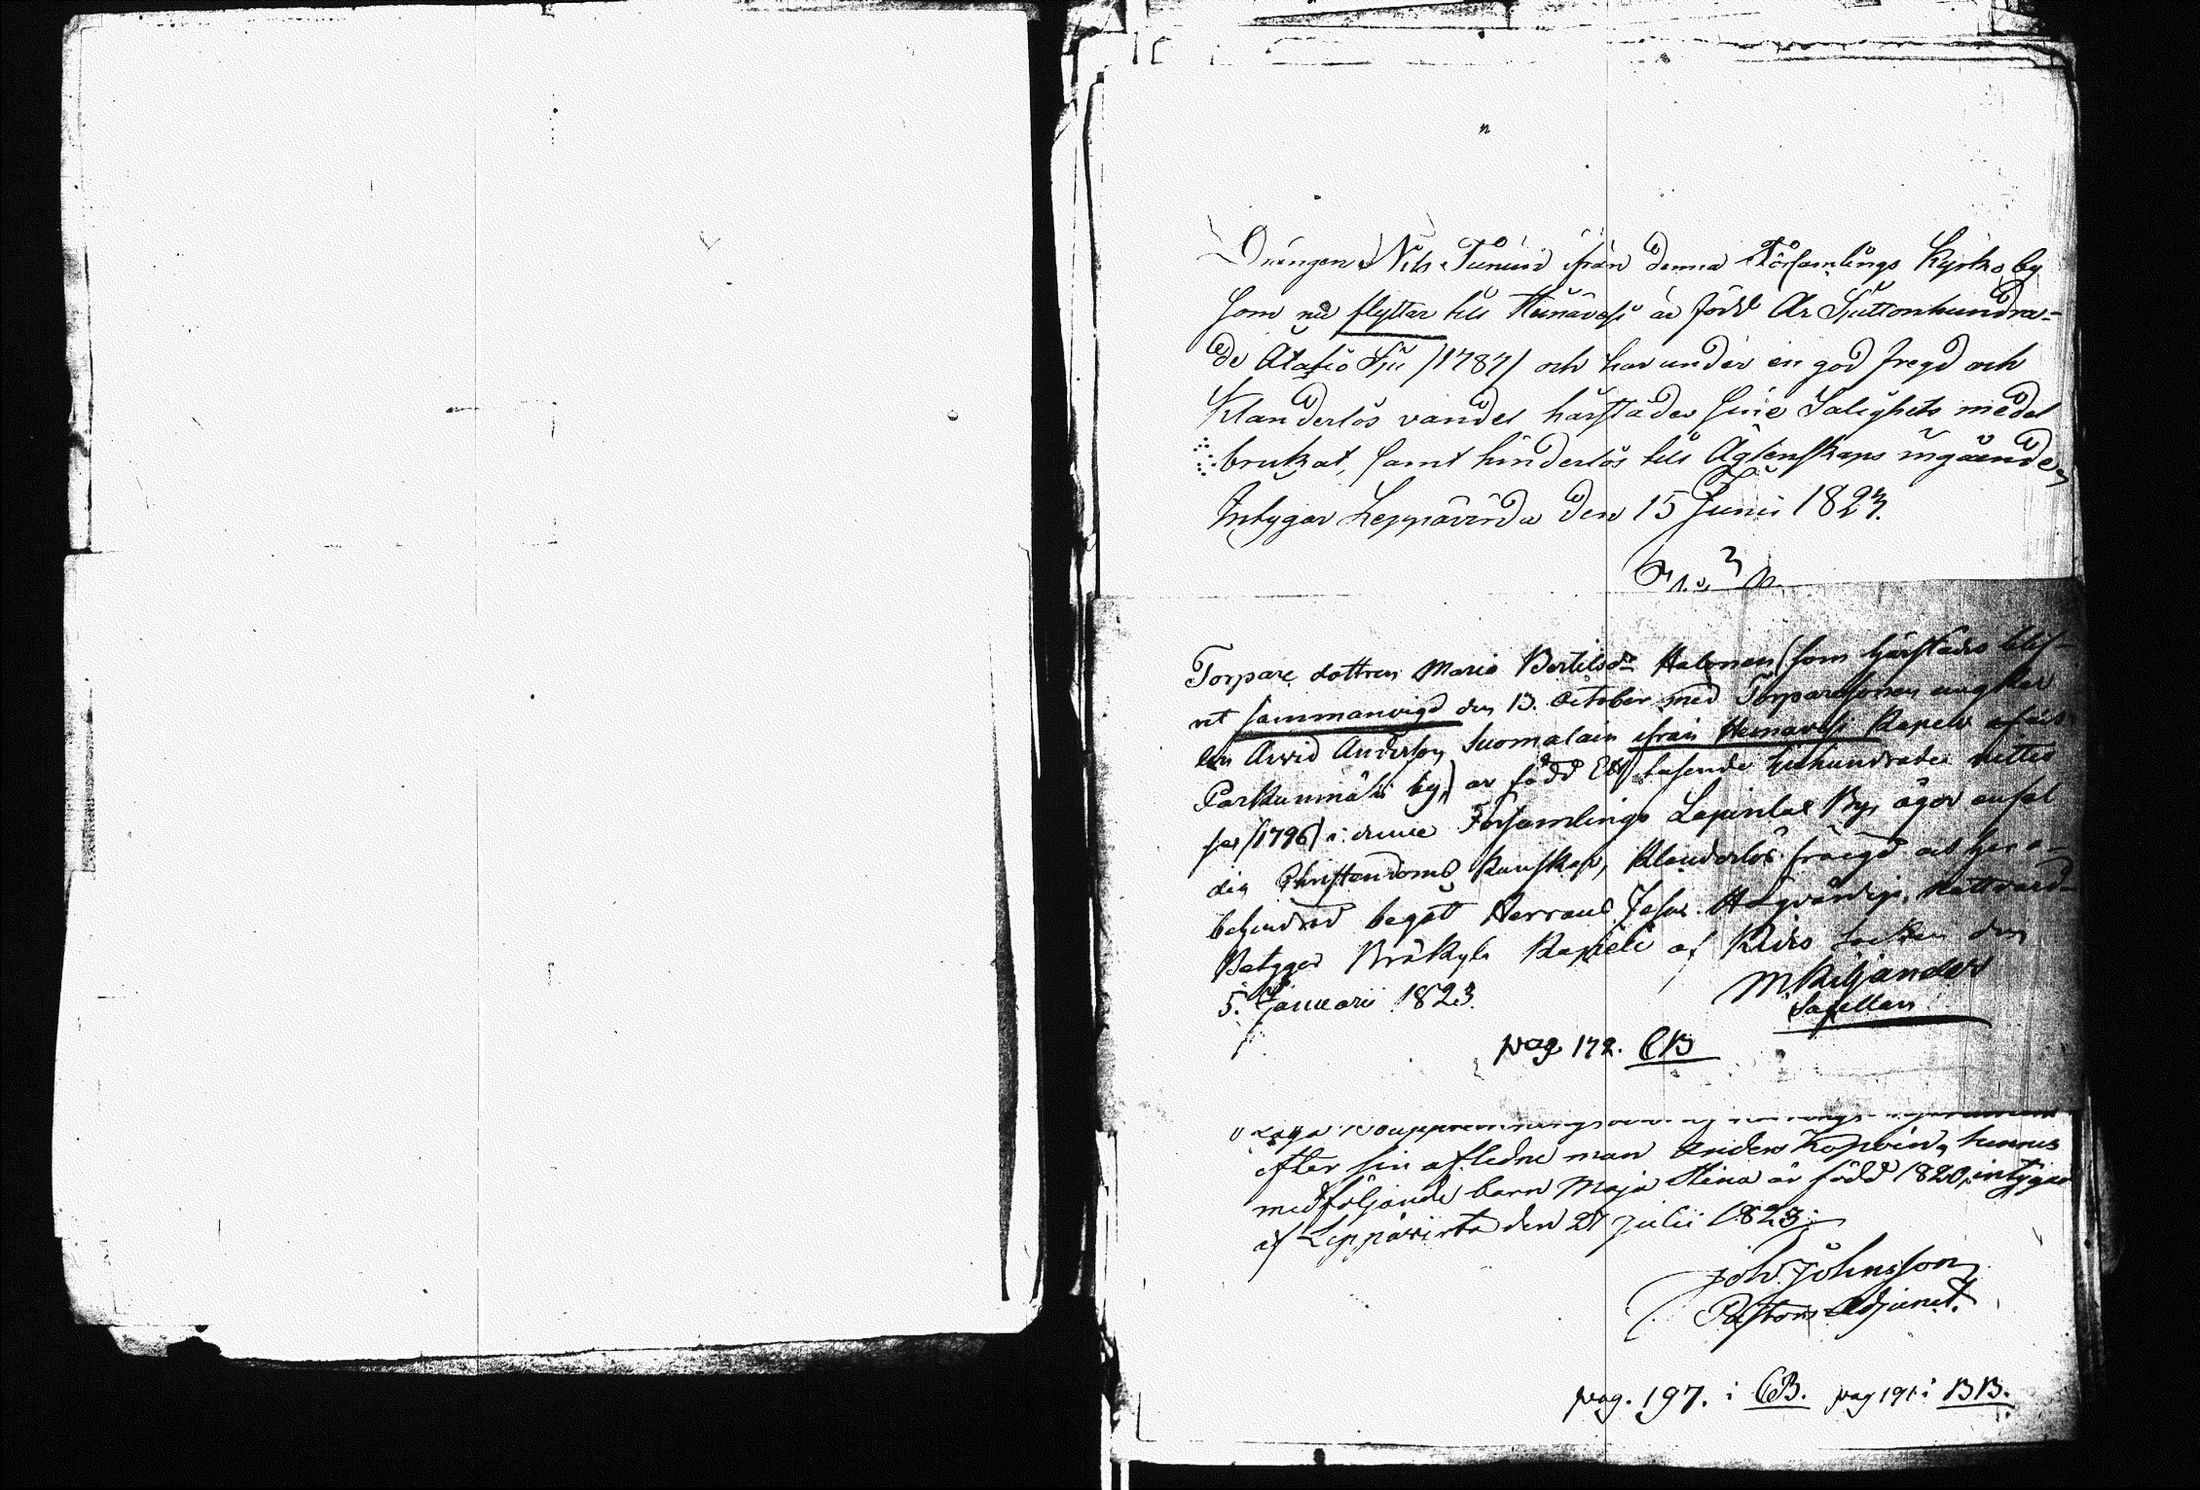 Drängen Nils Tenius ifrån denna Församlings Kyrko by
som nu flyttar till Heinävesi är född År Sjuttonhundra-
de Åtatio Sju /1787/ och har under en god fregd och
Klanderlös vandel härstädes sine Salighets medel
brukat, samt hinderlös till Ägtenskaps ingående,
Intygar Leppävirda den 15 Junii 1823.
Torpare dottren Maria Bertilsdr Halonen (som härstädes blif-
vit sammanvigd den 13. October med Torparesonen ungkar
len Arvid Andersson Suomalain ifrån Heinavesi Kapell
Parkunmäki by,) är född Ett tusende sjuhundrade nittio
sex (1796) i denne Församlings Lapinlax By, äger
dig Christendoms Kunskap, Klanderlös frägd och har o-
behindrad begått Herrans Jesu Högvärdige Nattvard
Betyger Bräkylä Kapell af Kides Socken den
5. Januarii 1823.
MKiljander
Capellan
pag 172. CB
efter sin afledne man Anders Kopoin, hennes
medföljande barn Maja Stina är född 1820, intygar
af Leppävirta den 21 Julii 1823.
Joh. Johnsson
Pastors Adjunct.
pag. 197. i CB. pag 191 i BB.